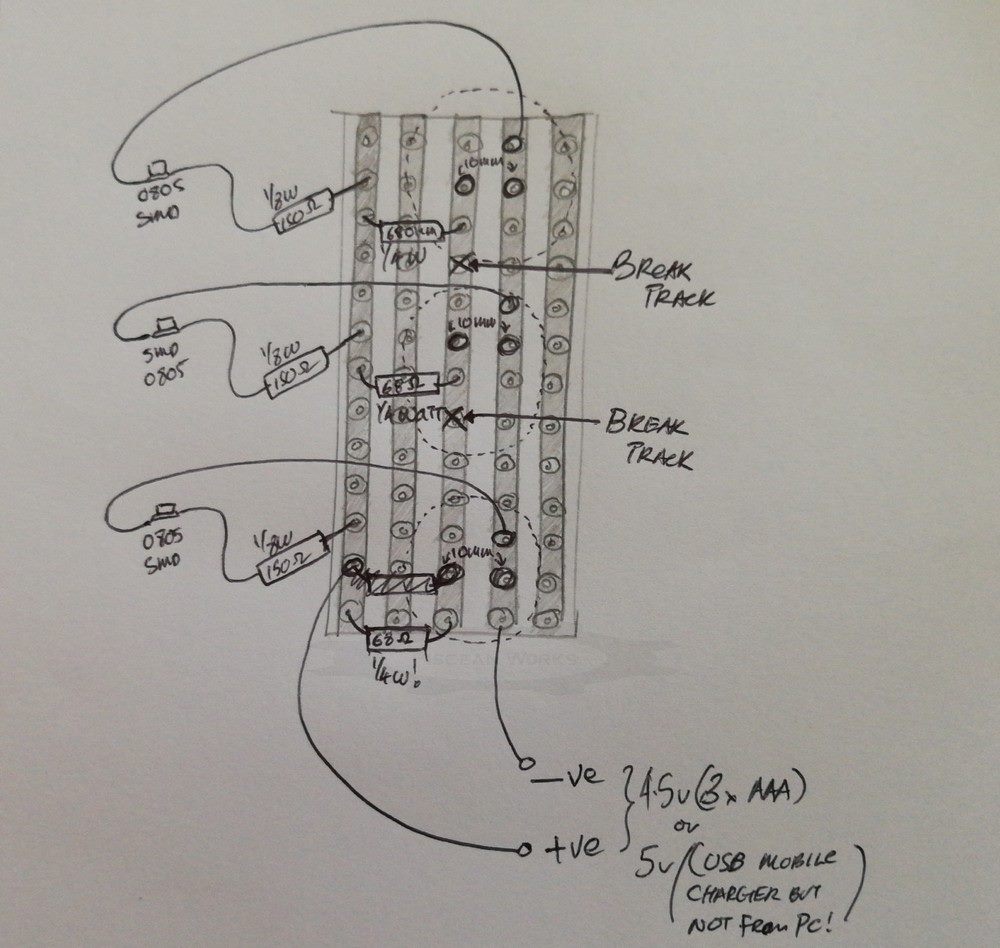 10mm
0805
SMD
1/8W
150Ω
680hm
1/4W
BREAK
TRACK
10mm
SMD
0805
1/8W
150Ω
68Ω
1/4WATT
BREAK
TRACK
10mm
0805
SMD
1/8W
150Ω
68Ω
1/4W!
-ve
+ve
4.5v (3x AAA)
or
5v (USB MOBILE
CHARGER BUT
NOT From PC!)